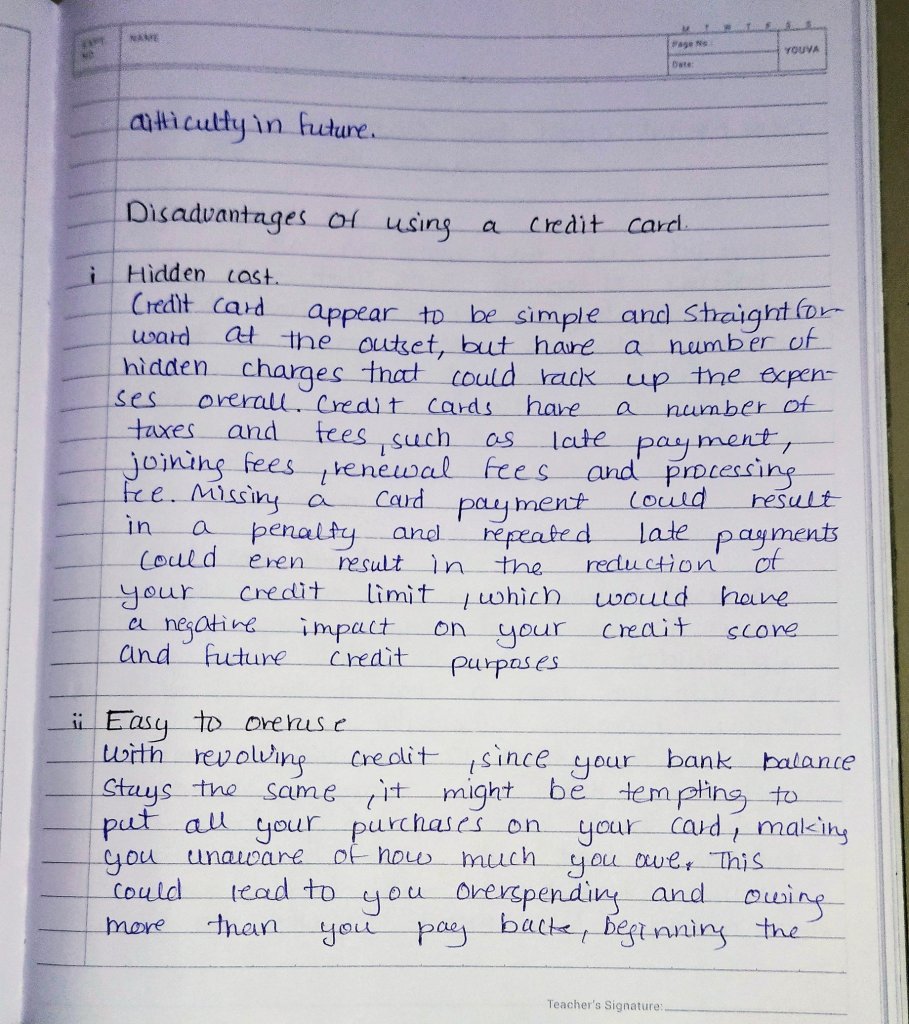 M T W T F S S
EXPT. NO.
NAME
Page No.:
Date:
YOUVA
difficulty in future.
Disadvantages of using a credit card.
i Hidden cost.
Credit card appear to be simple and straightfor-
ward at the outset, but have a number of
hidden charges that could rack up the expen-
ses overall. Credit cards have a number of
taxes and fees, such as late payment,
joining fees, renewal fees and processing
fee. Missing a card payment could result
in a penalty and repeated late payments
could even result in the reduction of
your credit limit, which would have
a negative impact on your credit score
and future credit purposes
ii Easy to overuse
With revolving credit, since your bank balance
stays the same, it might be tempting to
put all your purchases on your card, making
you unaware of how much you owe. This
could lead to you overspending and owing
more than you pay back, beginning the
Teacher's Signature: